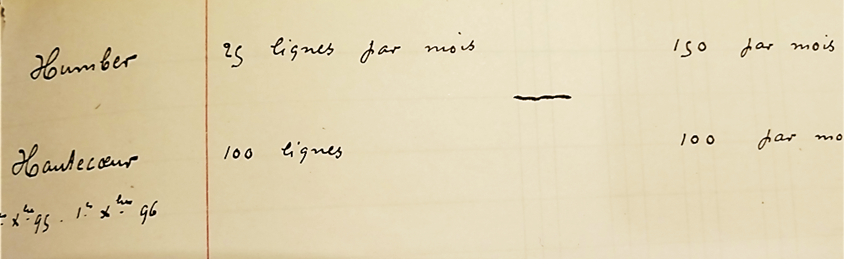 Humber 25 lignes par mois 150 par mois
Hautecœur 100 lignes 100 par mo
Xbre 95 - 1er Xbre 96